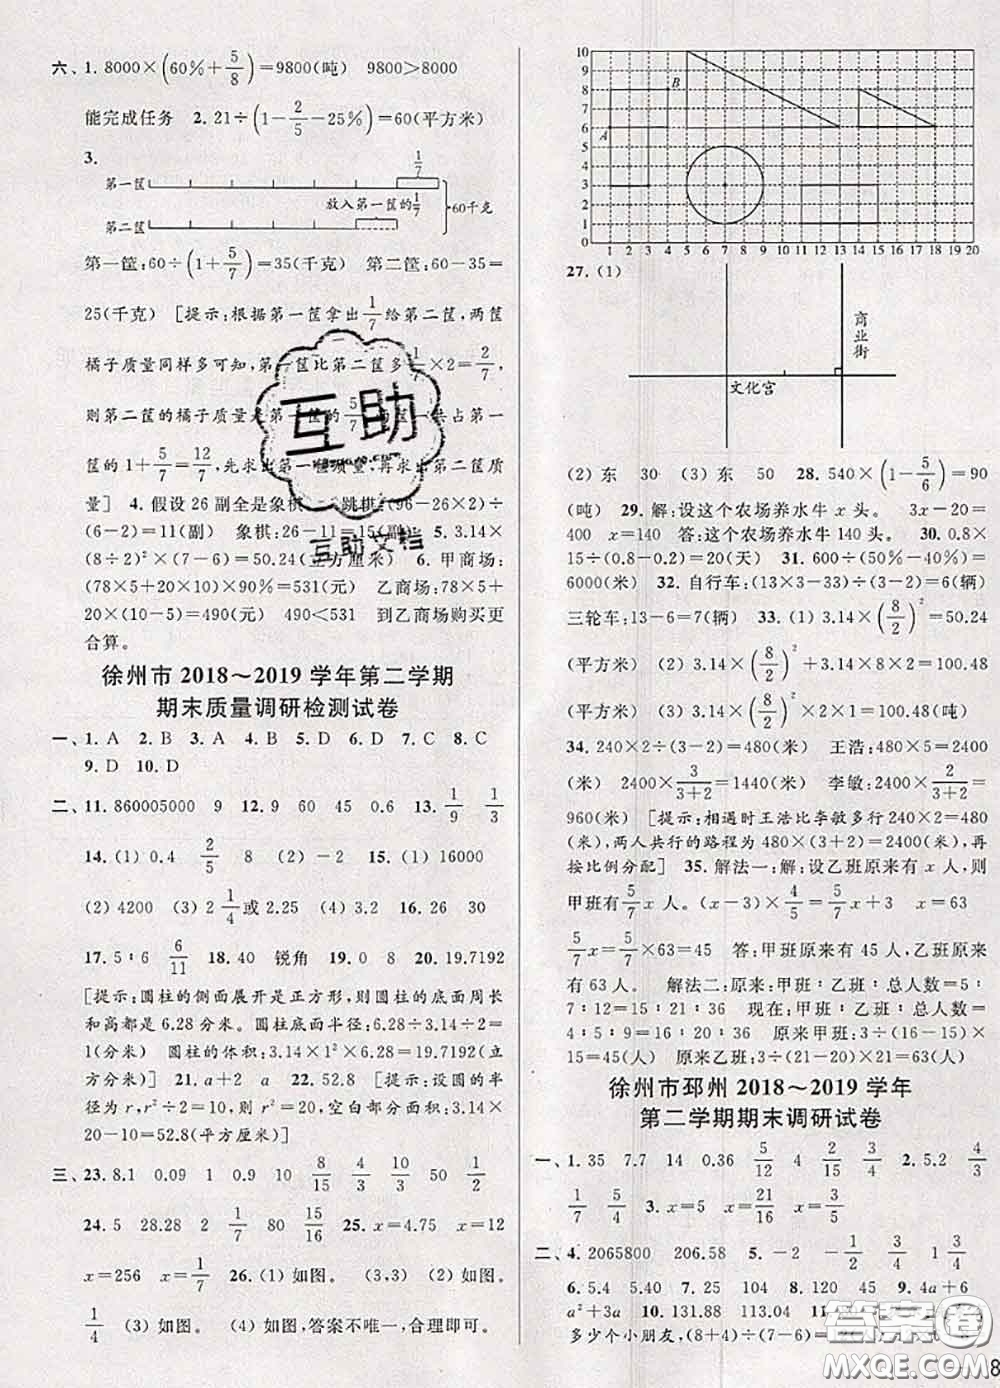 六、1. 8000×(60%+5/8)=9800(吨) 9800>8000
能完成任务 2. 21÷(1-2/5-25%)=60(平方米)
3.
1/7
第一筐
放入第一筐的1/7
60千克
第二筐
第一筐:60÷(1+5/7)=35(千克) 第二筐:60-35=
25(千克) [提示:根据第一筐拿出1/7给第二筐,两筐
橘子质量同样多可知,第一筐比第二筐多1/7×2=2/7,
则第二筐的橘子质量是第一筐的5/7,两筐一共占第一
筐的1+5/7=12/7,先求出第一筐质量,再求出第二筐质
量] 4. 假设26副全是象棋。 跳棋:(96-26×2)÷
(6-2)=11(副) 象棋:26-11=15(副) 5. 3.14×
(8÷2)²×(7-6)=50.24(立方厘米) 6. 甲商场:
(78×5+20×10)×90%=531(元) 乙商场:78×5+
20×(10-5)=490(元) 490<531 到乙商场购买更
合算。
徐州市 2018～2019 学年第二学期
期末质量调研检测试卷
一、1. A 2. B 3. A 4. B 5. D 6. D 7. C 8. C
9. D 10. D
二、11. 860005000 9 12. 9 60 45 0.6 13. 1/9 1/3
14. (1) 0.4 2/5 8 (2) -2 15. (1) 16000
(2) 4200 (3) 2 1/4或 2.25 (4) 3.2 16. 26 30
17. 5∶6 6/11 18. 40 锐角 19. 40 20. 19.7192
[提示:圆柱的侧面展开是正方形,则圆柱的底面周长
和高都是 6.28 分米。圆柱底面半径:6.28÷3.14÷2=
1(分米) 圆柱的体积:3.14×1²×6.28=19.7192(立
方分米)] 21. a+2 a 22. 52.8 [提示:设圆的半
径为 r, r²÷2=10, r²=20, 空白部分面积:3.14×
20-10=52.8(平方厘米)]
三、23. 8.1 0.09 1 0.9 10 8/15 4/3 10/3 50 1/2
24. 5 28.28 2 1/7 80 15/16 25. x=4.75 x=12
x=256 x=1/7 26. (1) 如图。 (3,3) (2) 如图。
1/4 (3) 如图。 (4) 如图,答案不唯一,合理即可。
10
9
8
7
6
5
4
3
2
1
0
A
B
1 2 3 4 5 6 7 8 9 10 11 12 13 14 15 16 17 18 19 20
27. (1)
商业街
文化宫
(2) 东 30 (3) 东 50 28. 540×(1-5/6)=90
(吨) 29. 解:设这个农场养水牛 x 头。 3x-20=
400 x=140 答:这个农场养水牛 140 头。 30. 0.8×
15÷(0.8-0.2)=20(天) 31. 600÷(50%-40%)=
6000(米) 32. 自行车:(13×3-33)÷(3-2)=6(辆)
三轮车:13-6=7(辆) 33. (1) 3.14×(8/2)²=50.24
(平方米) (2) 3.14×(8/2)²+3.14×8×2=100.48
(平方米) (3) 3.14×(8/2)²×2×1=100.48(吨)
34. 240×2÷(3-2)=480(米) 王浩:480×5=2400
(米) 2400×3/(3+2)=1440(米) 李敏:2400×2/(3+2)=
960(米) [提示:相遇时王浩比李敏多行 240×2=480
(米),两人共行的路程为 480×(3+2)=2400(米),再
按比例分配] 35. 解法一:解:设乙班原来有 x 人,则
甲班有5/7 x 人。 (x-3)×4/5=5/7 x+3 x=63
5/7 x=5/7×63=45 答:甲班原来有 45 人,乙班原
来有 63 人。 解法二:原来:甲班∶乙班∶总人数=5∶
7∶12=15∶21∶36 现在:甲班∶乙班∶总人数=
4∶5∶9=16∶20∶36 原来甲班:3÷(16-15)×15=
45(人) 原来乙班:3÷(21-20)×21=63(人)
徐州市邳州 2018～2019 学年
第二学期期末调研试卷
一、1. 35 7.7 14 0.36 5/12 4 2/15 3/4 2. 5.2 4/3
1/7 5/4 3. x=5 x=21/16 x=3/5
二、4. 2065800 206.58 5. -2 -1/2 1 3/4 3/4
6. 5.54 5.40 7. 25 104 8. 120 45 9. 4a+6
a²+3a 10. 131.88 113.04 11.
多少个小朋友,(8+4)÷(7-6)=
互助
互助文档
答案圈
MXQE.COM
8